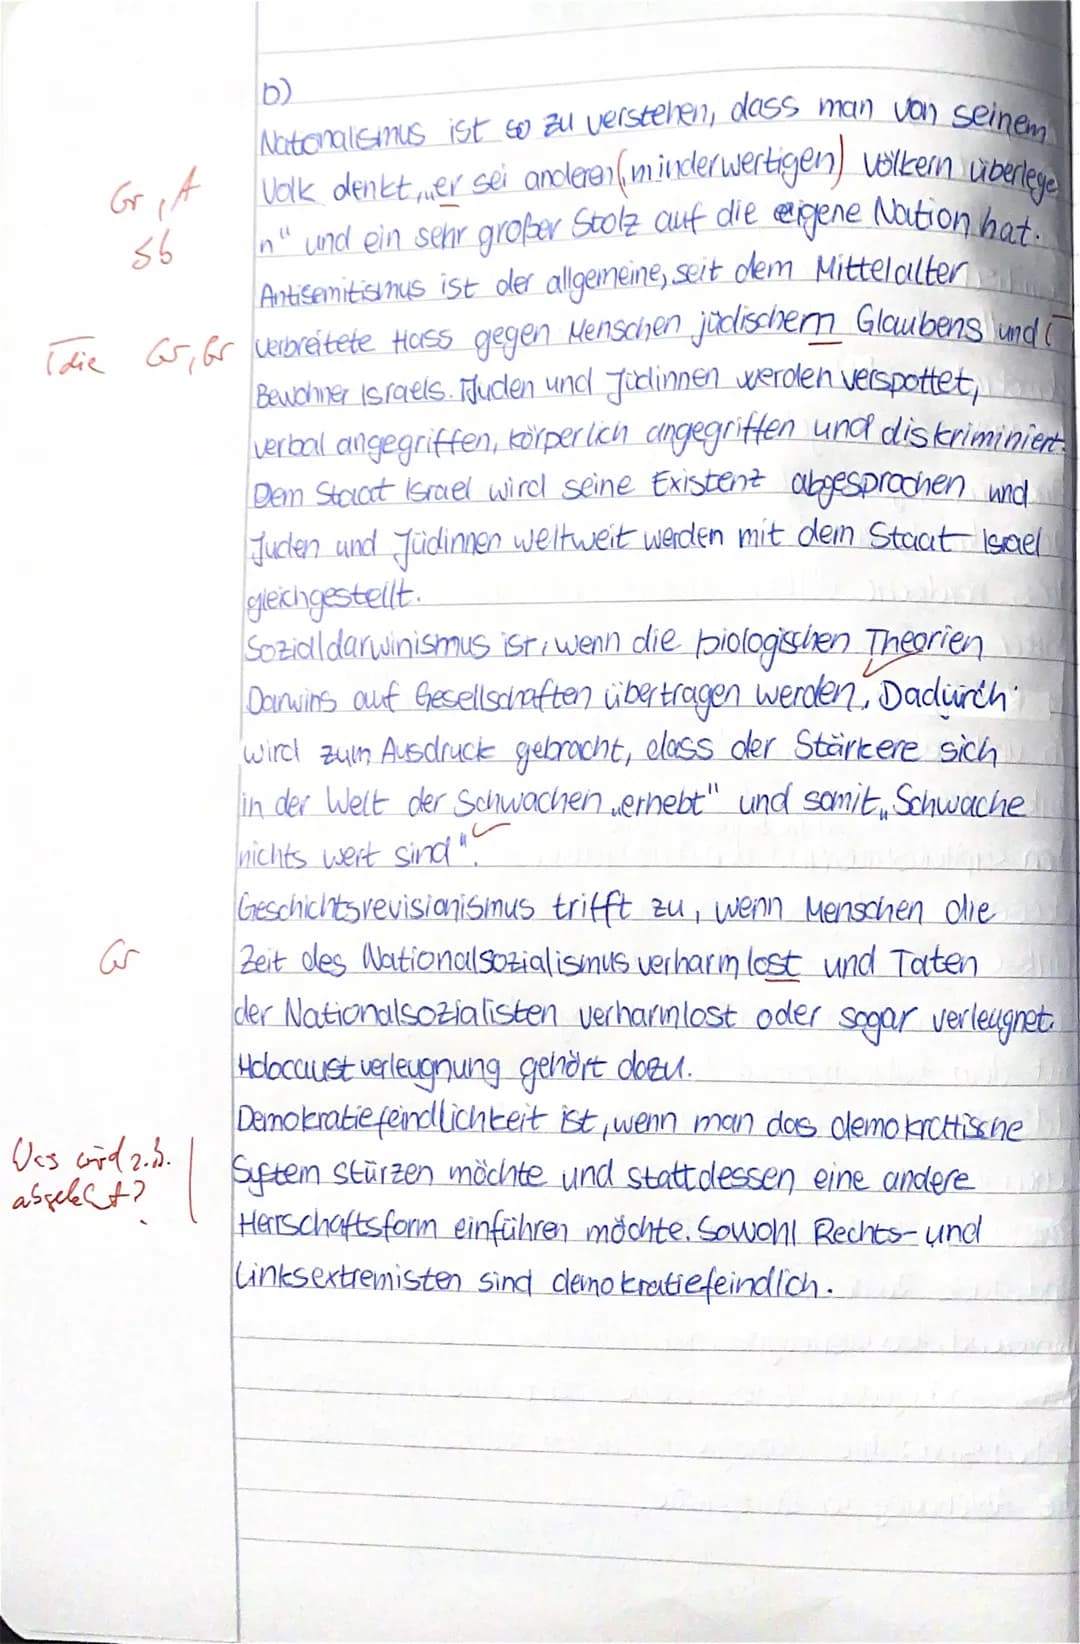 b)
Natonalismus ist so zu verstehen, dass man von seinem
Gr, A Volk denkt, „er sei anderen (minderwertigen) Völkern überlege
Sb n" und ein sehr großer Stolz auf die eigene Nation hat.
Antisemitismus ist der allgemeine, seit dem Mittelalter
die Gr, Gr verbreitete Hass gegen Menschen jüdischem Glaubens und
Bewohner Israels. Juden und Jüdinnen werden verspottet,
verbal angegriffen, körperlich angegriffen und diskriminiert.
Dem Staat Israel wird seine Existenz abgesprochen und
Juden und Jüdinnen weltweit werden mit dem Staat Israel
gleichgestellt.
Sozialdarwinismus ist, wenn die biologischen Theorien
Darwins auf Gesellschaften übertragen werden, Dadurch
wird zum Ausdruck gebracht, dass der Stärkere sich
in der Welt der Schwachen „erhebt" und somit „Schwache
nichts wert sind".
Geschichtsrevisionismus trifft zu, wenn Menschen die
Gr Zeit des Nationalsozialismus verharmlost und Taten
der Nationalsozialisten verharmlost oder sogar verleugnet.
Holocaustverleugnung gehört dazu.
Demokratiefeindlichkeit ist, wenn man das demokratische
Was wird z.B. System stürzen möchte und stattdessen eine andere
abgelehnt? Herrschaftsform einführen möchte. Sowohl Rechts- und
Linksextremisten sind demokratiefeindlich.